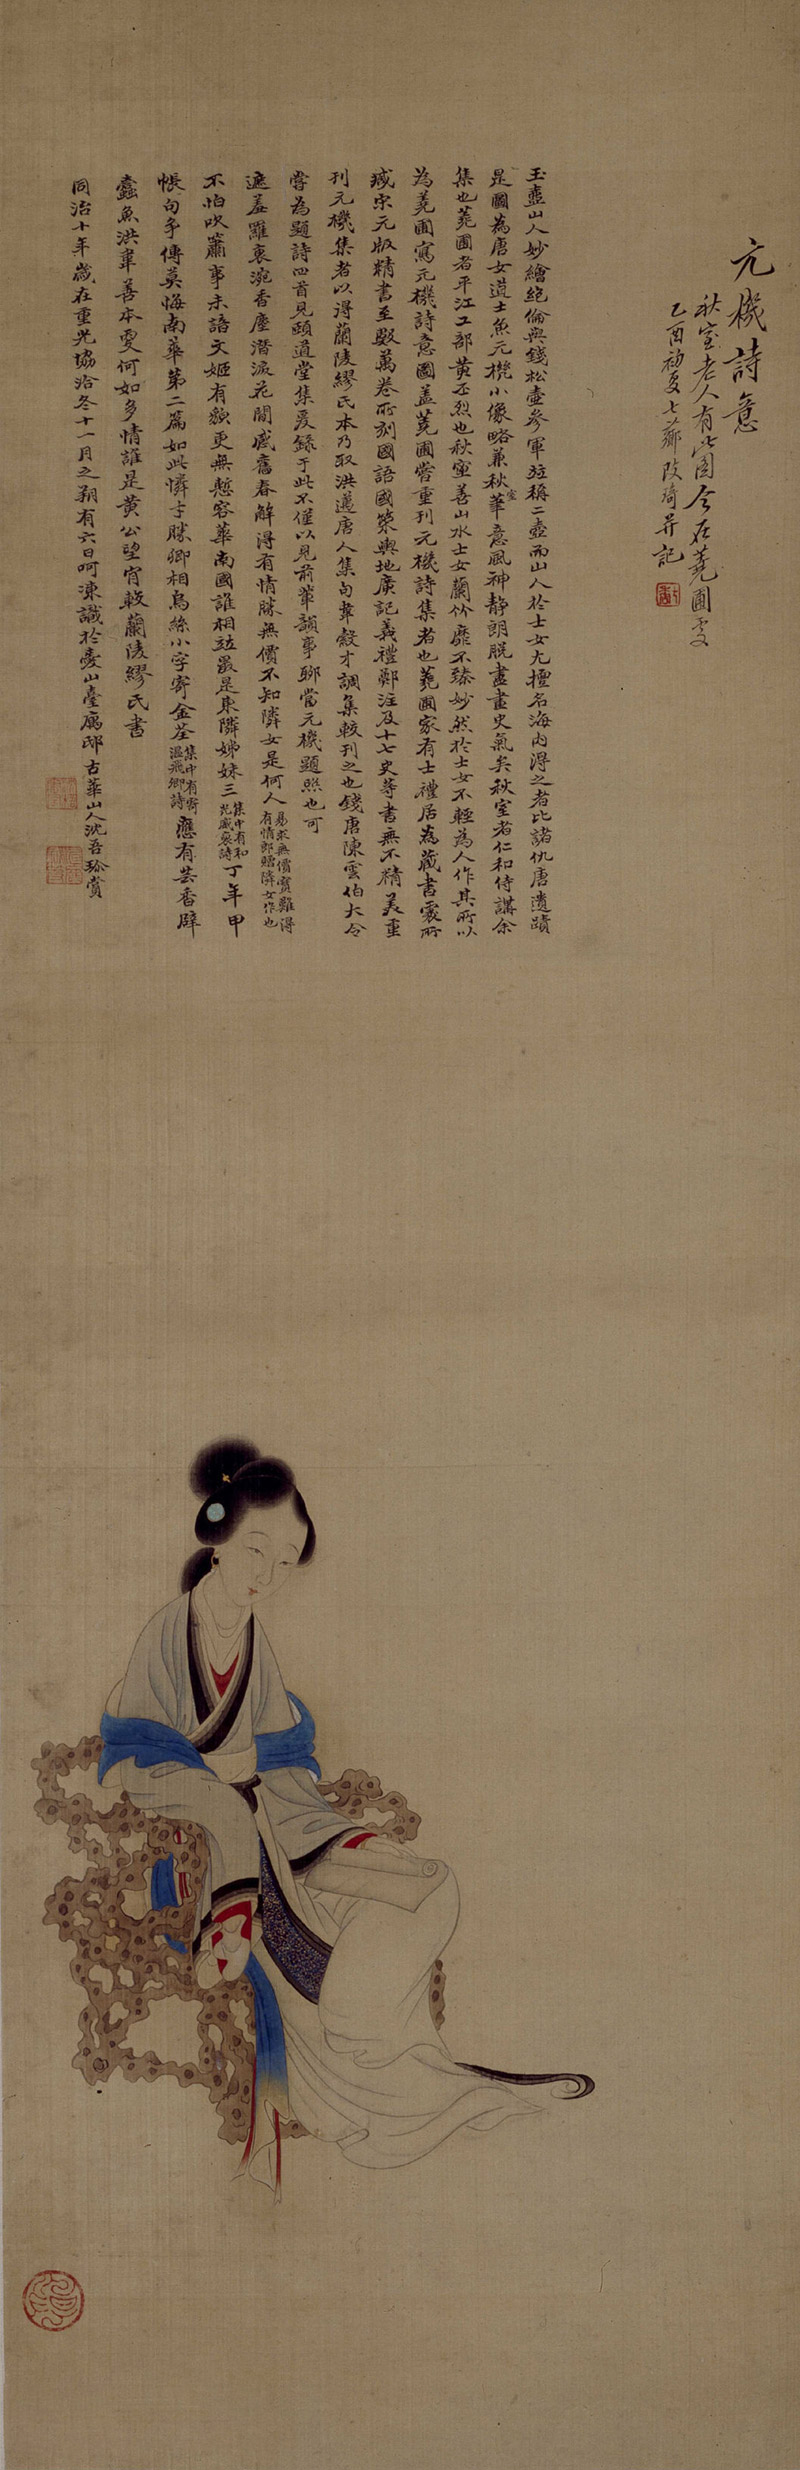 元機詩意
秋室老人有此圖今在蕘圃處
乙酉初夏七薌改琦并記
玉壺山人妙繪絕倫與錢松壺參軍竝稱二壺而山人於士女尤擅名海內得之者比諸仇唐遺蹟
是圖為唐女道士魚元機小像略兼秋室華意風神靜朗脫盡畫史氣矣秋室者仁和侍講余
集也蕘圃者平江工部黃丕烈也秋室善山水士女蘭竹靡不臻妙然於士女不輕為人作其所以
為蕘圃寫元機詩意圖蓋蕘圃嘗重刊元機詩集者也蕘圃家有士禮居為藏書處所
臧宋元版精書至數萬卷所刻國語國策輿地廣記義禮鄭注及十七史等書無不精美重
刊元機集者以得蘭陵繆氏本乃取洪邁唐人集句韋縠才調集較刊之也錢唐陳雲伯大令
嘗為題詩四首見頤道堂集爰錄于此不僅以見前輩韻事聊當元機題照也可
遮羞羅袖浣香塵潛淚花間感舊春解得有情勝無價不知隣女是何人易求無價寶難得有情郎贈隣女作也
不怕吹簫事未諧文姬有貌更無慙容華南國誰相竝最是東隣姊妹三集中有和光威裒詩丁年甲
帳句爭傳莫悔南華第二篇如此憐才勝卿相烏絲小字寄金荃集中有寄溫飛卿詩應有芸香辟
蠹魚洪韋善本更何如多情誰是黃公望宵較蘭陵繆氏書
同治十年歲在重光協洽冬十一月之朔有六日呵凍識於憂山臺寓邸古華山人沈吾珍賞